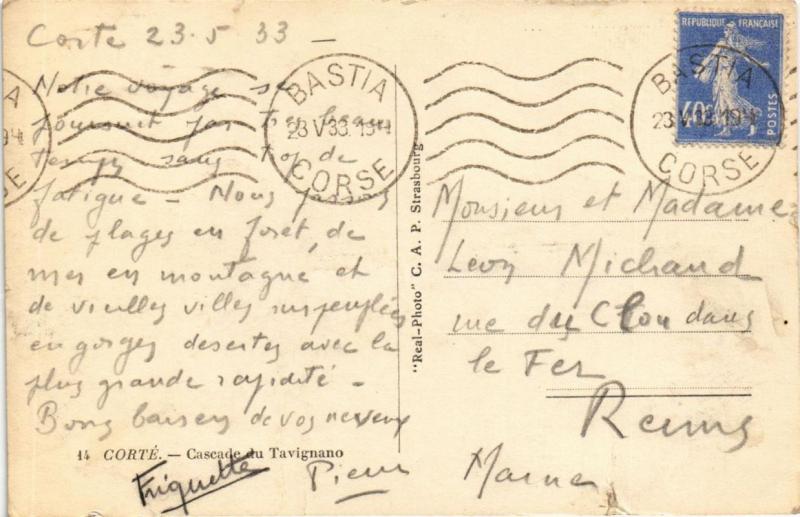 Corte 23.5 33 —
Notre voyage se
poursuit par très beau
temps sans trop de
fatigue — Nous passons
de plages en forêt, de
mer en montagne et
de vieilles villes surpeuplées
en gorges desertes avec la
plus grande rapidité —
Bons baisers de vos neveux
14 CORTÉ. — Cascade du Tavignano
Friquette Pierre
"Real-Photo" C. A. P. Strasbourg
BASTIA
23 V 33. 19
CORSE
RÉPUBLIQUE FRANÇAISE
40c
POSTES
BASTIA
CORSE
Monsieur et Madame
Léon Michaud
rue du Clou dans
le Fer
Reims
Marne